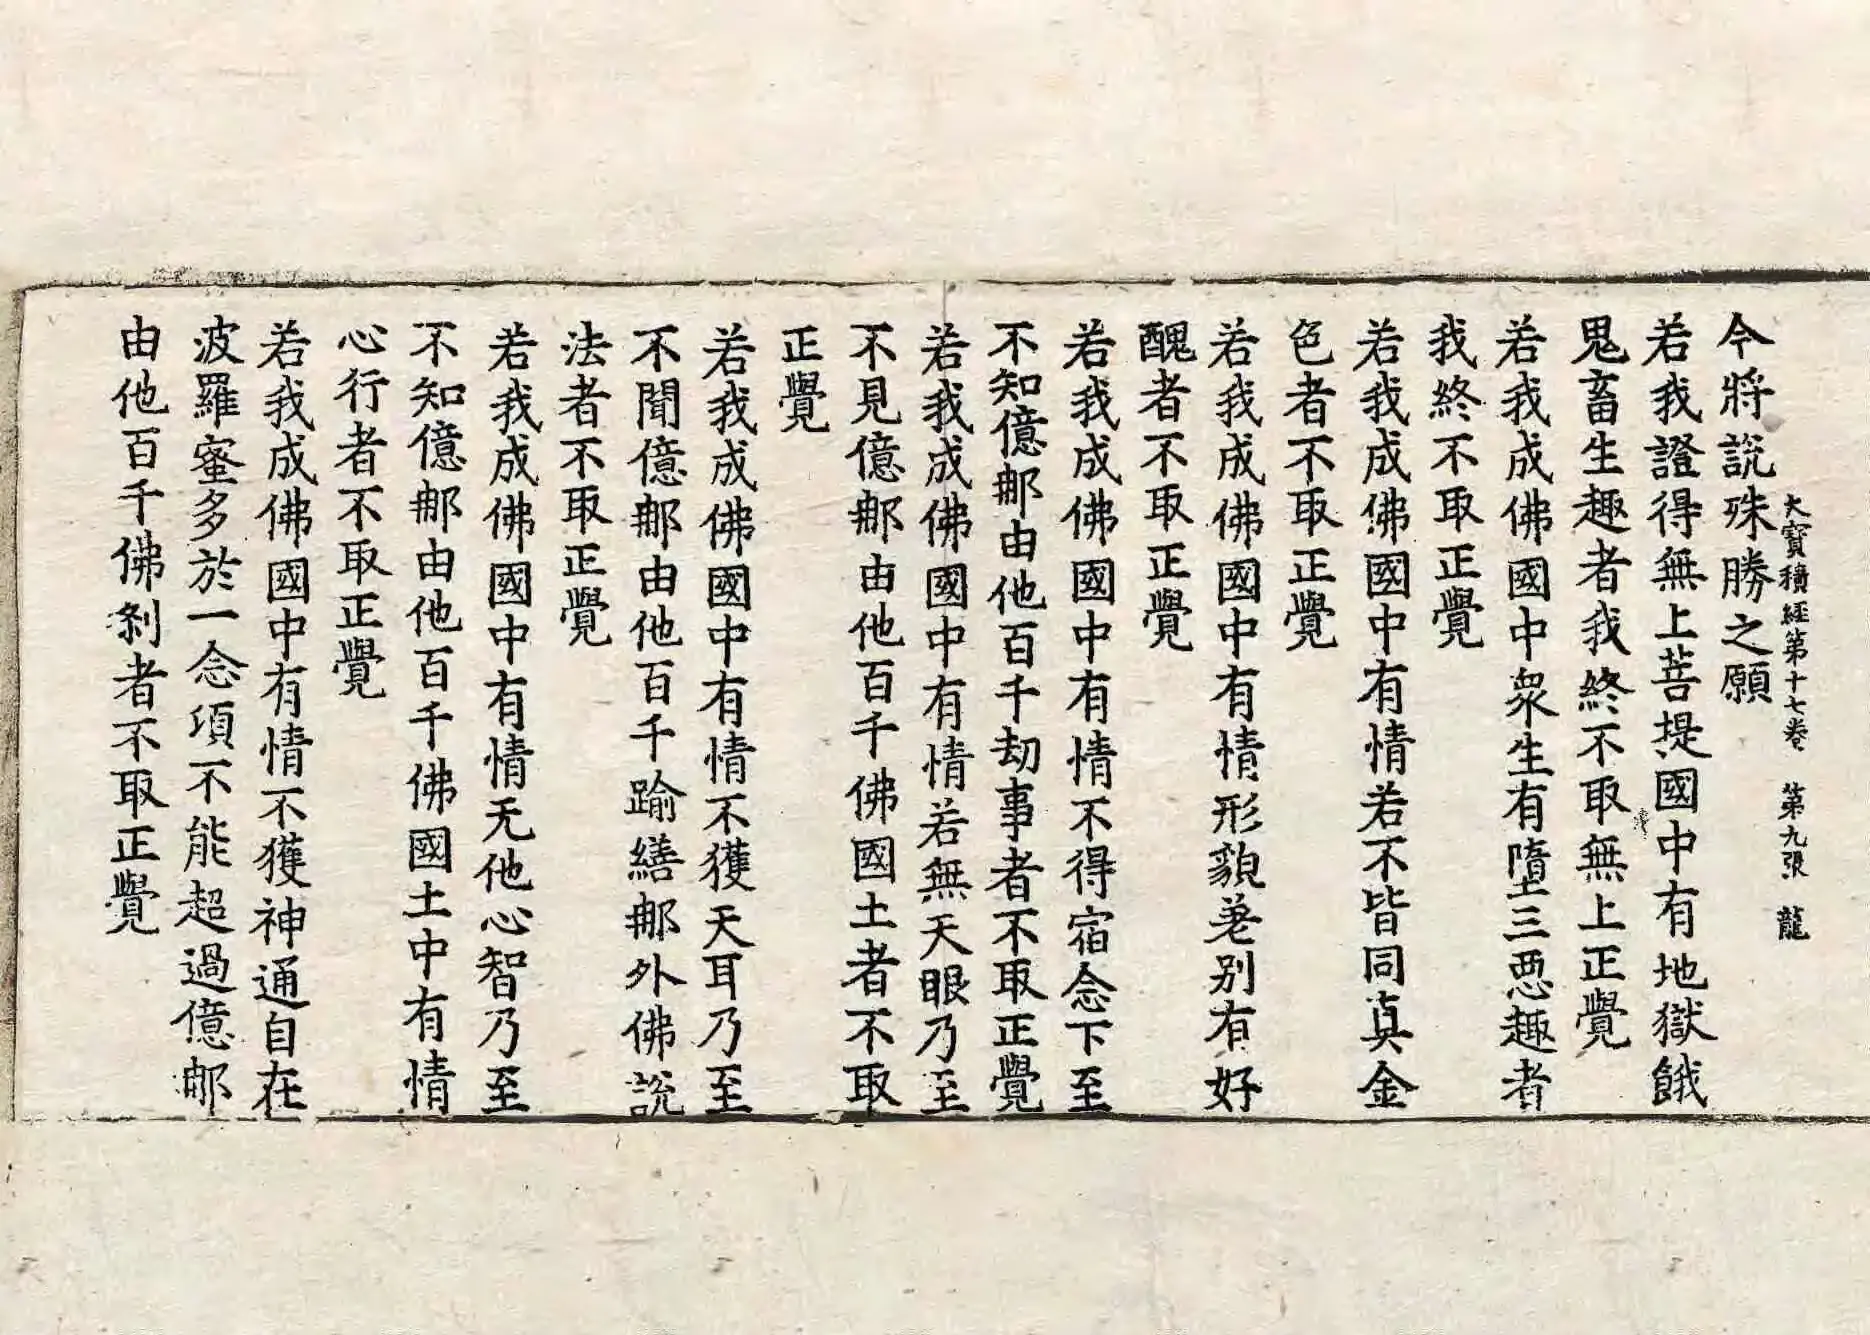 大寶積經第十七卷 第九張 龍
今將說殊勝之願
若我證得無上菩提國中有地獄餓
鬼畜生趣者我終不取無上正覺
若我成佛國中衆生有墮三惡趣者
我終不取正覺
若我成佛國中有情若不皆同真金
色者不取正覺
若我成佛國中有情形貌差別有好
醜者不取正覺
若我成佛國中有情不得宿念下至
不知億那由他百千劫事者不取正覺
若我成佛國中有情若無天眼乃至
不見億那由他百千佛國土者不取
正覺
若我成佛國中有情不獲天耳乃至
不聞億那由他百千踰繕那外佛說
法者不取正覺
若我成佛國中有情无他心智乃至
不知億那由他百千佛國土中有情
心行者不取正覺
若我成佛國中有情不獲神通自在
波羅蜜多於一念項不能超過億那
由他百千佛刹者不取正覺